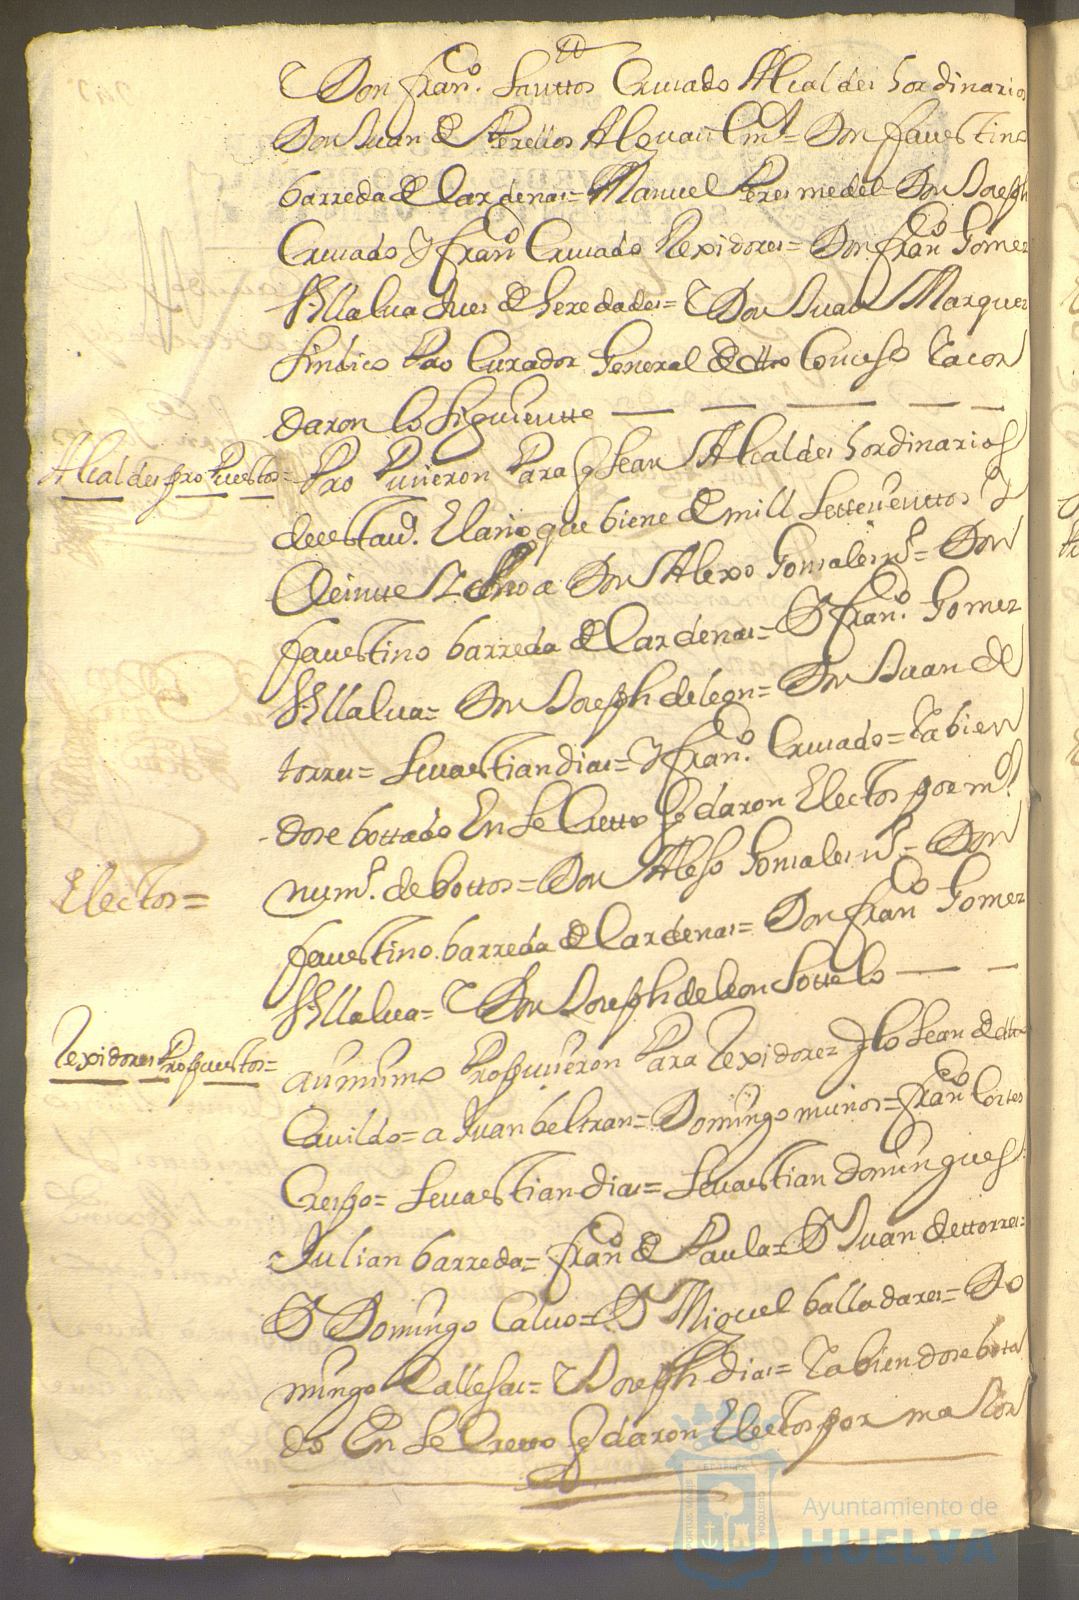 Y Don Fran.co Santtos Cruzado Alcaldes hordinarios
Don Juan de Trexillos = Don Faustino
barreda de Cardenas = Manuel Peres medel = Don Joseph
Cruzado Y Fran.co Cruzado Rexidores = Don Fran.co Gomez
Villalua Jues de heredades = Y Don Juan Marquez
Sindico Procurador General de dtto Consejo Y acor
daron lo Siguientte
Alcaldes proPuestos = ProPusieron Para q Sean Alcaldes hordinarios
de esta Elaño que biene de mill Settezienttos Y
Veintte a Don Alexo Gonsales = Don
faustino barreda de Cardenas = D Fran.co Gomez
Villalua = Don Joseph de leon = Don Juan de
torres = Sevastian dias = Y Fran.co Cruzado = Y abien
dose bottado En Secretto q daron Electos por m.r
num.o de bottos = Don Alexo Gonsales = Don
Electos =
faustino barreda de Cardenas = Don Fran.co Gomez
Villalua = Y Don Joseph de leon Sottelo
Rexidores Propuestos = asimismo Propusieron Para Rexidores q lo Sean de dtto
Cavildo = a Juan beltran = Domingo muños = Fran.co Cortes
Crespo = Sevastian dias = Sevastian domingues
Julian barreda = Fran.co de Paula = D Juan de ttorres =
D Domingo Calvo = D Miguel balladares = Do
mingo Vallejas = Y Joseph dias = Y abiendose bota
do En Secretto q daron Electos por maior
Ayuntamiento de
HUELVA